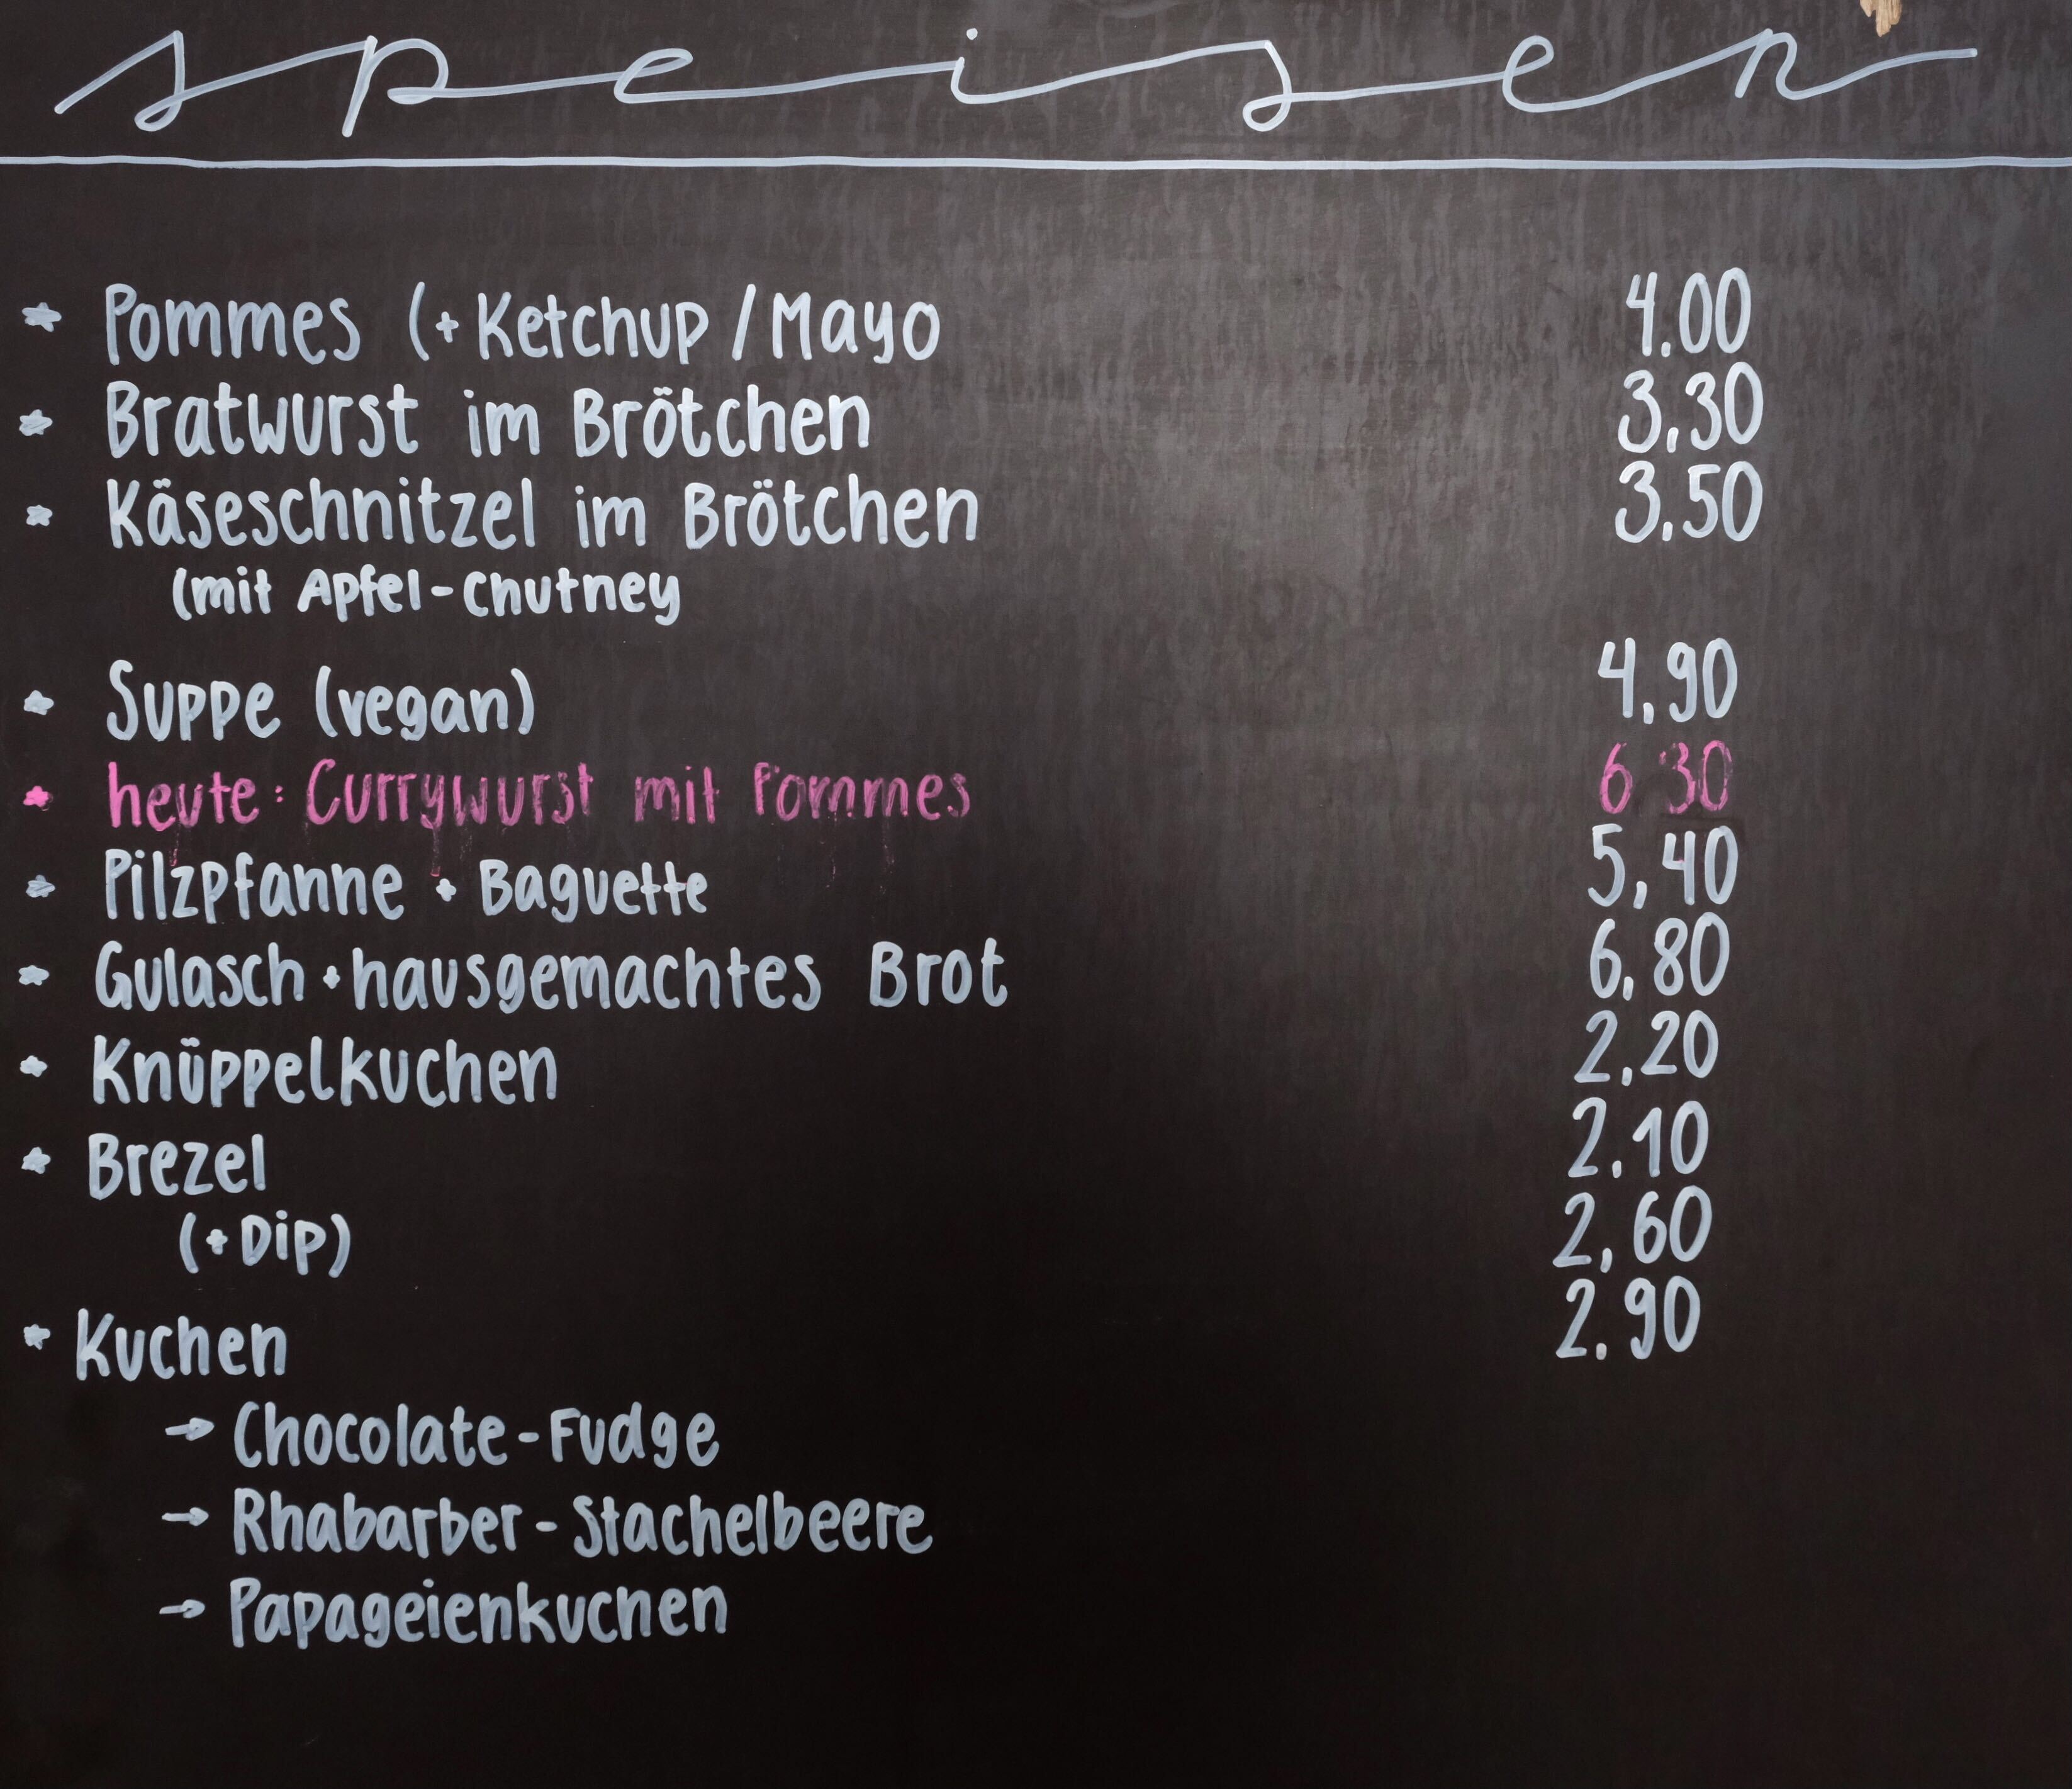 speisen
* Pommes (+ Ketchup / Mayo 4.00
* Bratwurst im Brötchen 3,30
* Käseschnitzel im Brötchen 3.50
(mit Apfel-Chutney
* Suppe (vegan) 4,90
* heute: Currywurst mit Pommes 6 30
* Pilzpfanne + Baguette 5,40
* Gulasch + hausgemachtes Brot 6,80
* Knüppelkuchen 2,20
* Brezel 2.10
(+ Dip) 2,60
* Kuchen 2.90
→ Chocolate-Fudge
→ Rhabarber-Stachelbeere
→ Papageienkuchen